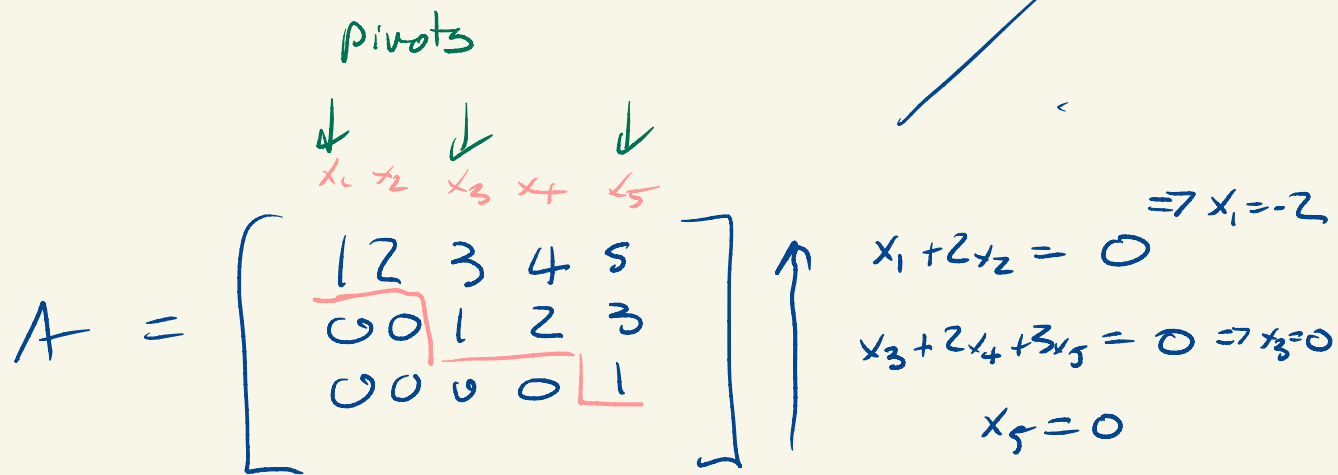 pivots
x₁ x₂ x₃ x₄ x₅
A = [ 1 2 3 4 5
0 0 1 2 3
0 0 0 0 1 ]
=> x₁ = -2
x₁ + 2x₂ = 0
x₃ + 2x₄ + 3x₅ = 0 => x₃ = 0
x₅ = 0